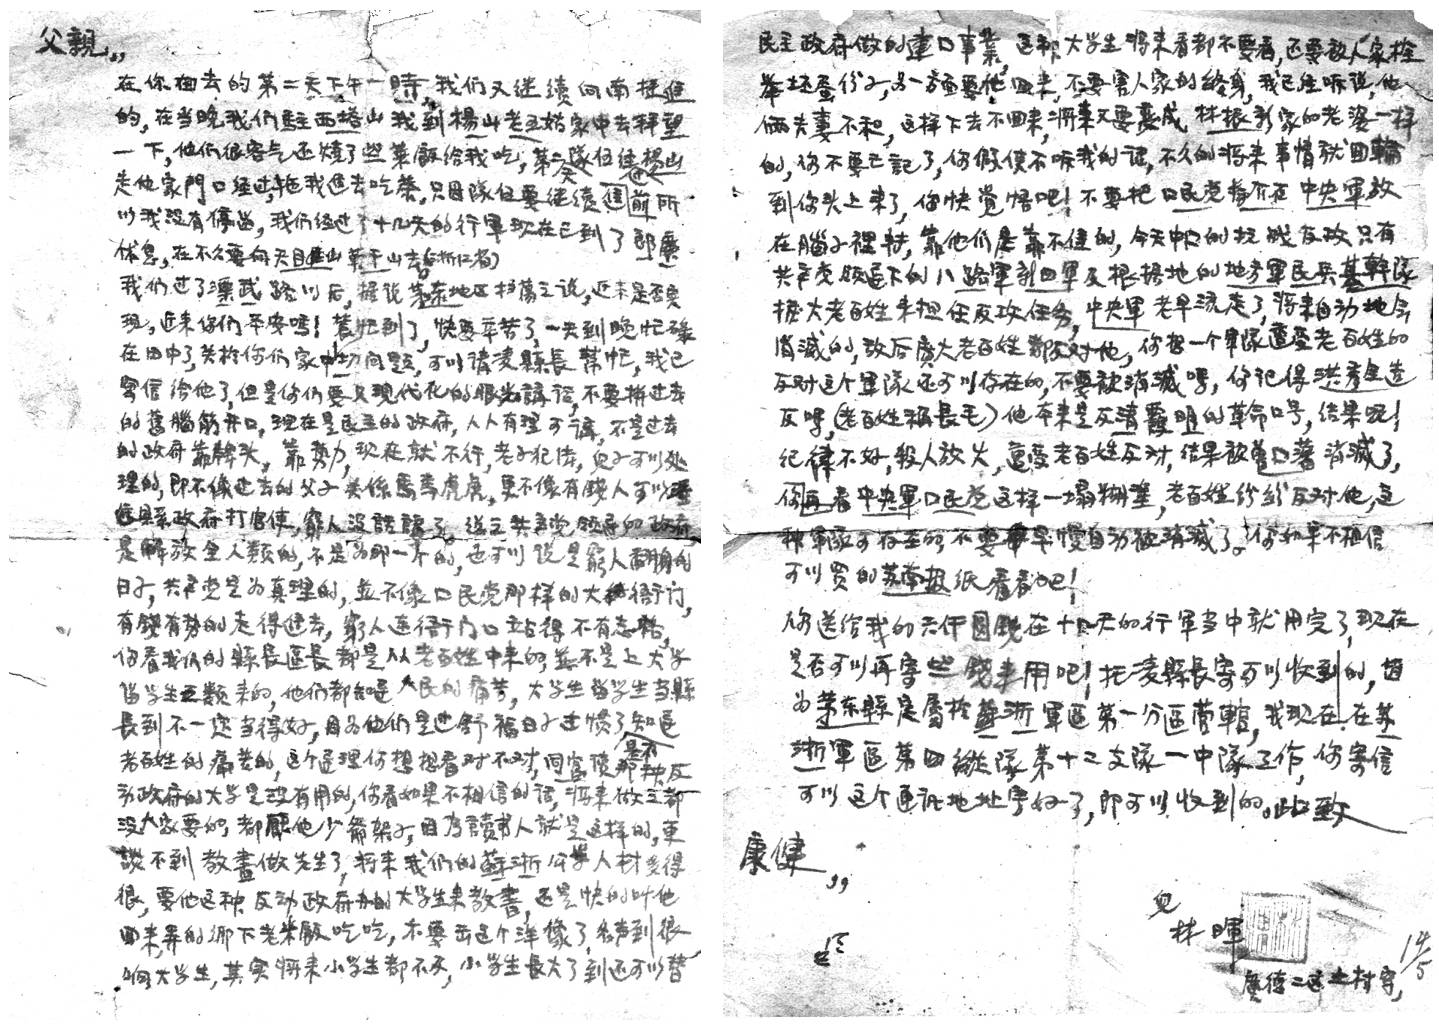 父親,,
在你回去的第二天下午一時,我们又继续向南挺進
的,在当晚我们駐西塔山我到楊山老五姑家中去拜望
一下,他们很客气还燒了些菜飯给我吃,第二天隊伍徒楊山
走他家門口经过,拖我進去吃茶,只因隊伍要继续前所
以我没有停留,我们经过了十几天的行軍现在已到了郎廣
休息,在不久要向天目山莫干山去(浙江省)
我们过了漂武路以后,据说茅东地区扫荡之说,近未是否实
现,近来你们平安嗎!蓄忙到了,快要辛苦了,一天到晚忙碌
在田中了,关於你们家中切问题,可以请凌縣長幫忙,我已
寄信给他了,但是你们要只现代化的眼光講話,不要拼过去
的舊腦筋开口,现在是民主的政府,人人有理可講,不是过去
的政府靠牌头,靠勢力,现在就不行,老子犯法,兒子可以处
理的,即不像过去的父子关係馬馬虎虎,更不像有錢人可以
縣政府打官使,窮人没話講了。总之共产党领导的政府
是解放全人類的,不是为那一个的,也可以说是窮人翻身的
日子,共产党是为真理的,並不像口民党那样的大衙門,
有錢有势的走得進去,窮人连衙门口站得不有志格,
你看我们的縣長區長都是从老百姓中来的,並不是上大学
留学生类来的,他们都知道人民的痛苦,大学生留学生当縣
長到不一定当得好,因为他们是过舒福日子过惯了知道
老百姓的痛苦的,这个道理你想想看对不对,同富债是不那种反
动政府的大学是没有用的,你看如果不相信的話,将来做工都
没人家要的,都願他少辭架子,因为讀书人就是这样的,更
談不到教書做先生了,将来我们的蘇浙公学人材多得
很,要他这种反动政府办的大学生来教書,还是快的叫他
回来弄的鄉下老米飯吃吃,不要去这个洋像了,名声到很
响大学生,其实将来小学生都不及,小学生長大了到还可以替
民主政府做的建口事業,这种大学生将来看都不要看,还要被人家控
举坏蛋份子,另一方面要他回来,不要害人家的終身,我已经听说,他
俩夫妻不和,这样下去不回来,将来又要变成林根彩家的老婆一样
的,你不要亡記了,你假使不听我的话,不久的将来事情就回輪
到你头上来了,你快觉悟吧!不要把口民党蒋介石中央軍放
在腦子裡转,靠他们是靠不住的,今天中口的抗战反攻只有
共产党领道下的八路軍新四軍及根据地的地方軍民兵基幹隊
擴大老百姓来担任反攻任务,中央軍老早流走了,将来自动地会
消滅的,敌后廣大老百姓都反对他,你想一个軍隊遭受老百姓的
反对这个軍隊还可以存在的,不要被消滅嗎,你记得洪秀全造
反嗎,(老百姓稱長毛)他本来是反清复明的革命口号,结果呢!
纪律不好,殺人放火,遭受老百姓反对,结果被曾口蕃消滅了,
你再看中央軍口民党这样一塌糊塗,老百姓纷纷反对他,这
种軍隊可存在的,不要早慢自动被消滅了。你如果不相信
可以买的苏南报纸看看吧!
你送给我的六仟圆錢在十几天的行軍当中就用完了,现在
是否可以再寄些錢来用吧!托凌縣長寄可以收到的,因
为茅东縣是属於蘇浙軍區第一分區营轄,我现在在苏
浙軍區第四縱隊第十二支隊一中隊工作,你寄信
可以这个通讯地址寄好了,即可以收到的。此致
康健,,
兒
林暉
14/5
廣德二區之村寄,